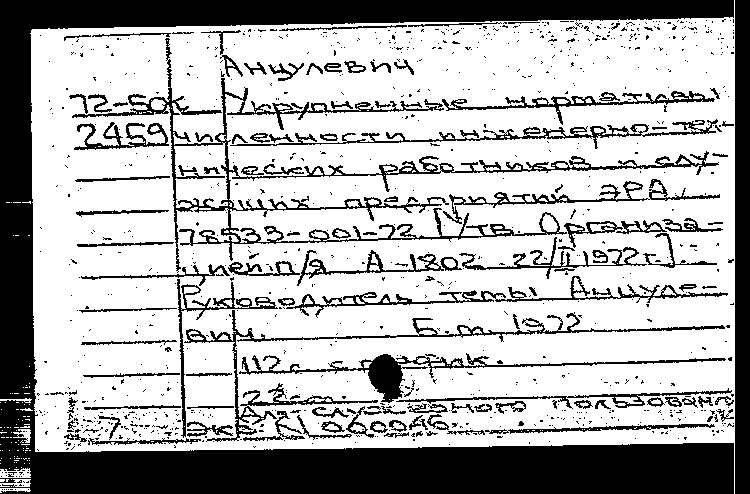 Анцулевич
72-50с Укрупненные нормативы
2459 численности инженерно-тех-
нических работников и слу-
жащих предприятий ЭРА.
78533-001-72 [Утв. Организа-
цией п/я А-1802 22/II 1972г.]
Руководитель темы Анцуле-
вич. Б.м., 1972
112 с. с график.
22 см.
Для служебного пользован.
7 экз. N 000046.